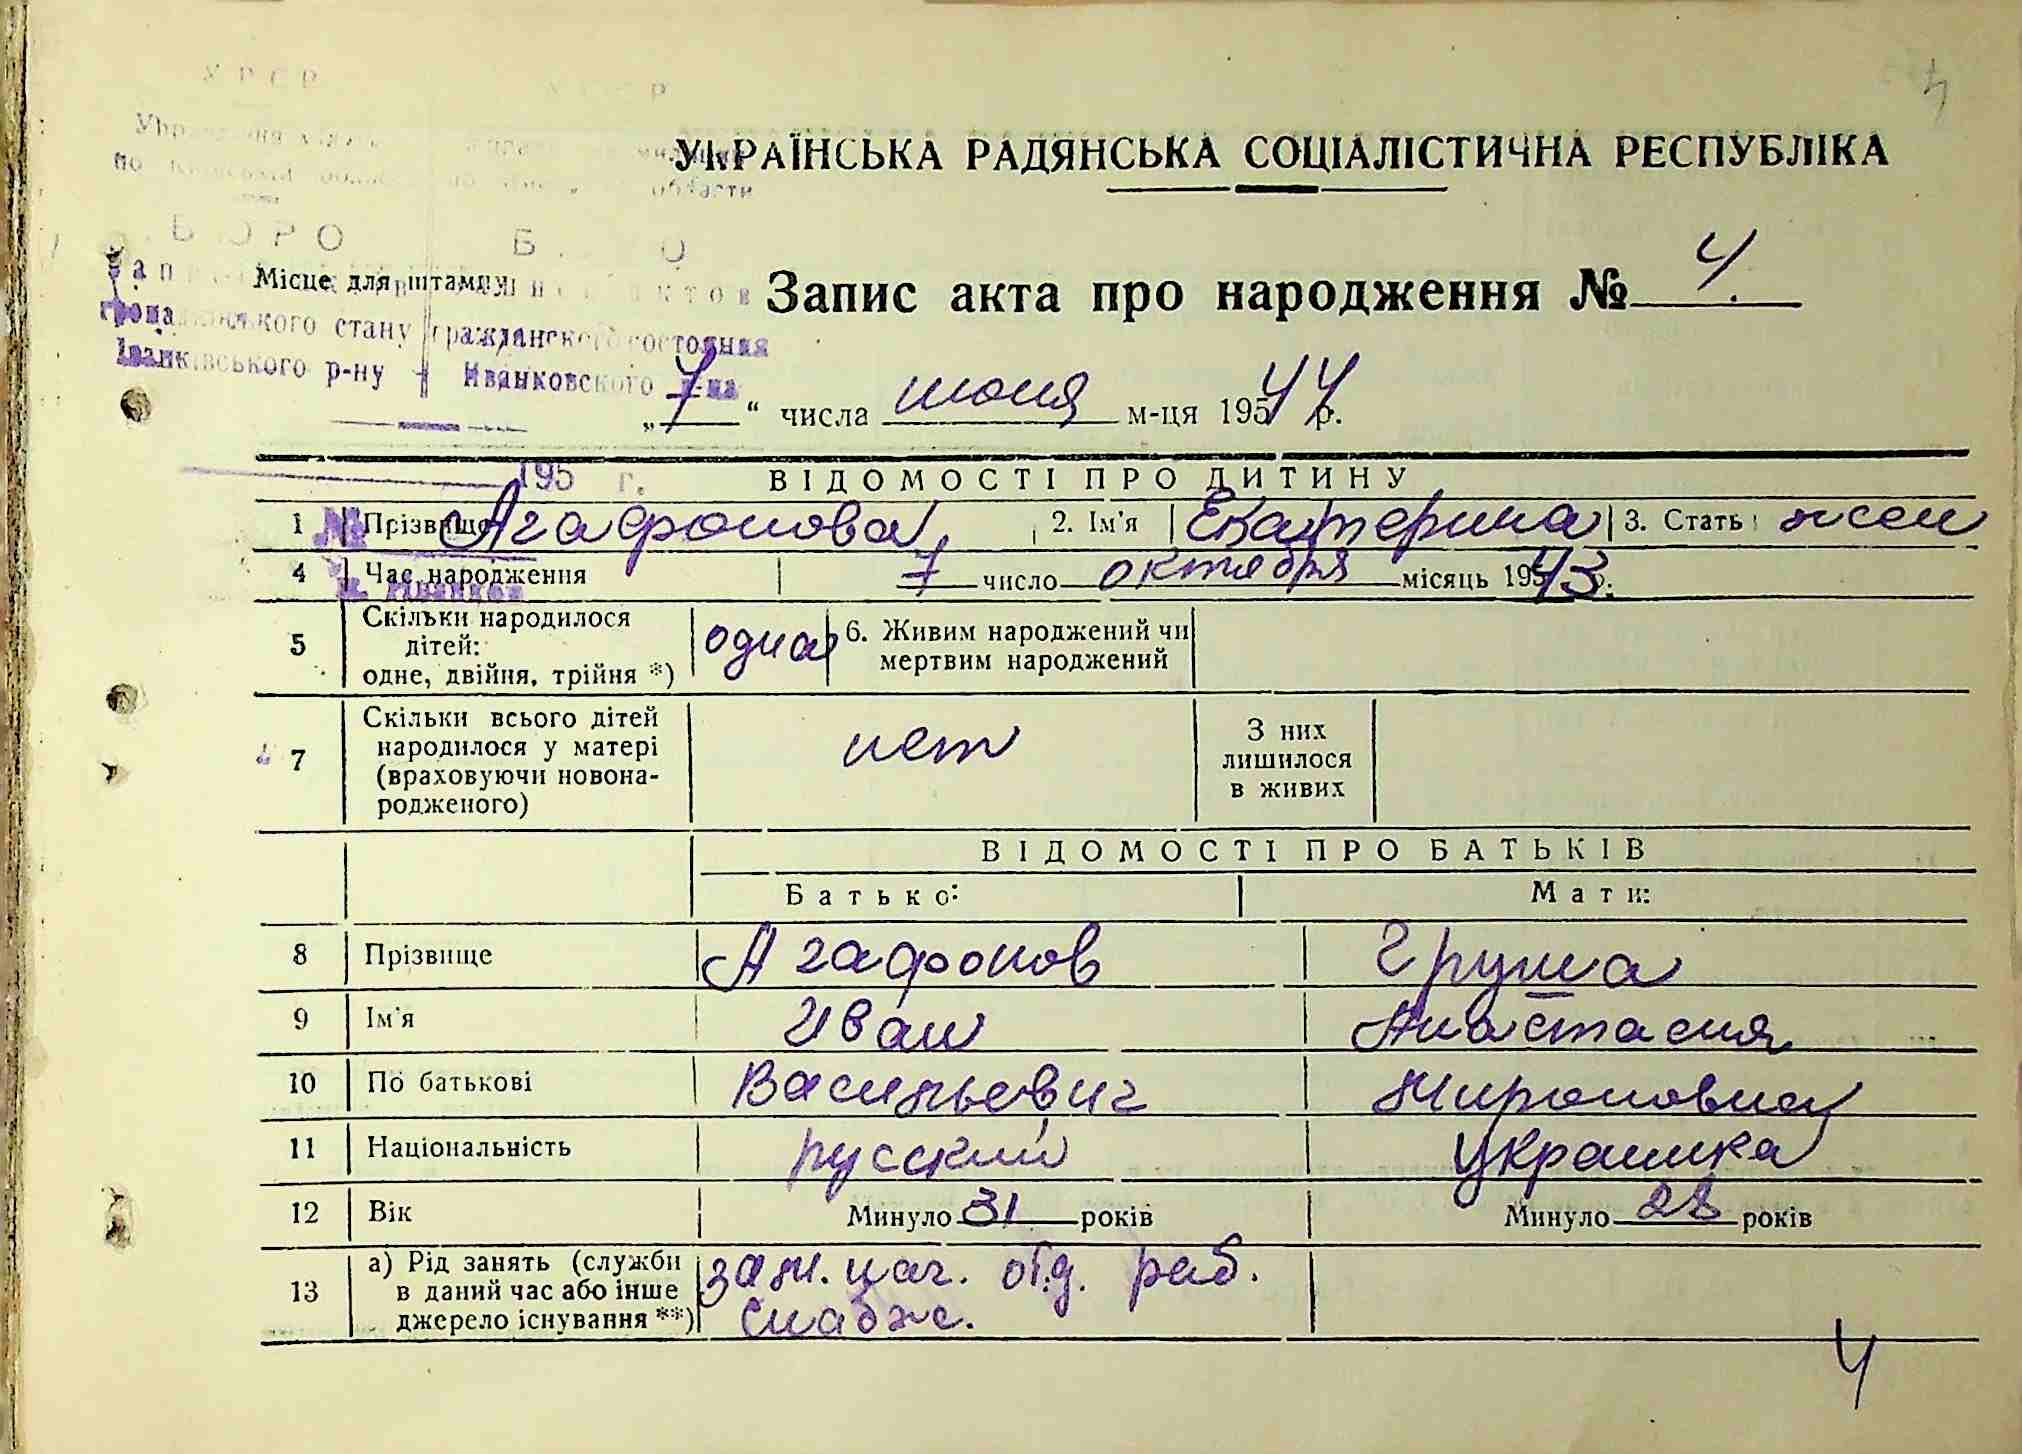 УРСР
УКРАЇНСЬКА РАДЯНСЬКА СОЦІАЛІСТИЧНА РЕСПУБЛІКА
области
БЮРО
Місце для штампу
Запис акта про народження № 4.
громадянського стану гражданского состояния
Іванківського р-ну Иванковского р-на
„7“ числа июня м-ця 1944 р.
195 г.
ВІДОМОСТІ ПРО ДИТИНУ
1 Прізвище Агафонова 2. Ім'я Екатерина 3. Стать жен
4 Час народження 7 число октября місяць 1943 р.
5 Скільки народилося дітей: одне, двійня, трійня *) одна 6. Живим народжений чи мертвим народжений
7 Скільки всього дітей народилося у матері (враховуючи новона-родженого) нет З них лишилося в живих
ВІДОМОСТІ ПРО БАТЬКІВ
Батько: Мати:
8 Прізвище Агафонов Груша
9 Ім'я Иван Анастасия
10 По батькові Васильевич Мироновна
11 Національність русский украинка
12 Вік Минуло 31 років Минуло 28 років
13 а) Рід занять (служби в даний час або інше джерело існування **) зам. нач. отд. раб. снабж.
4